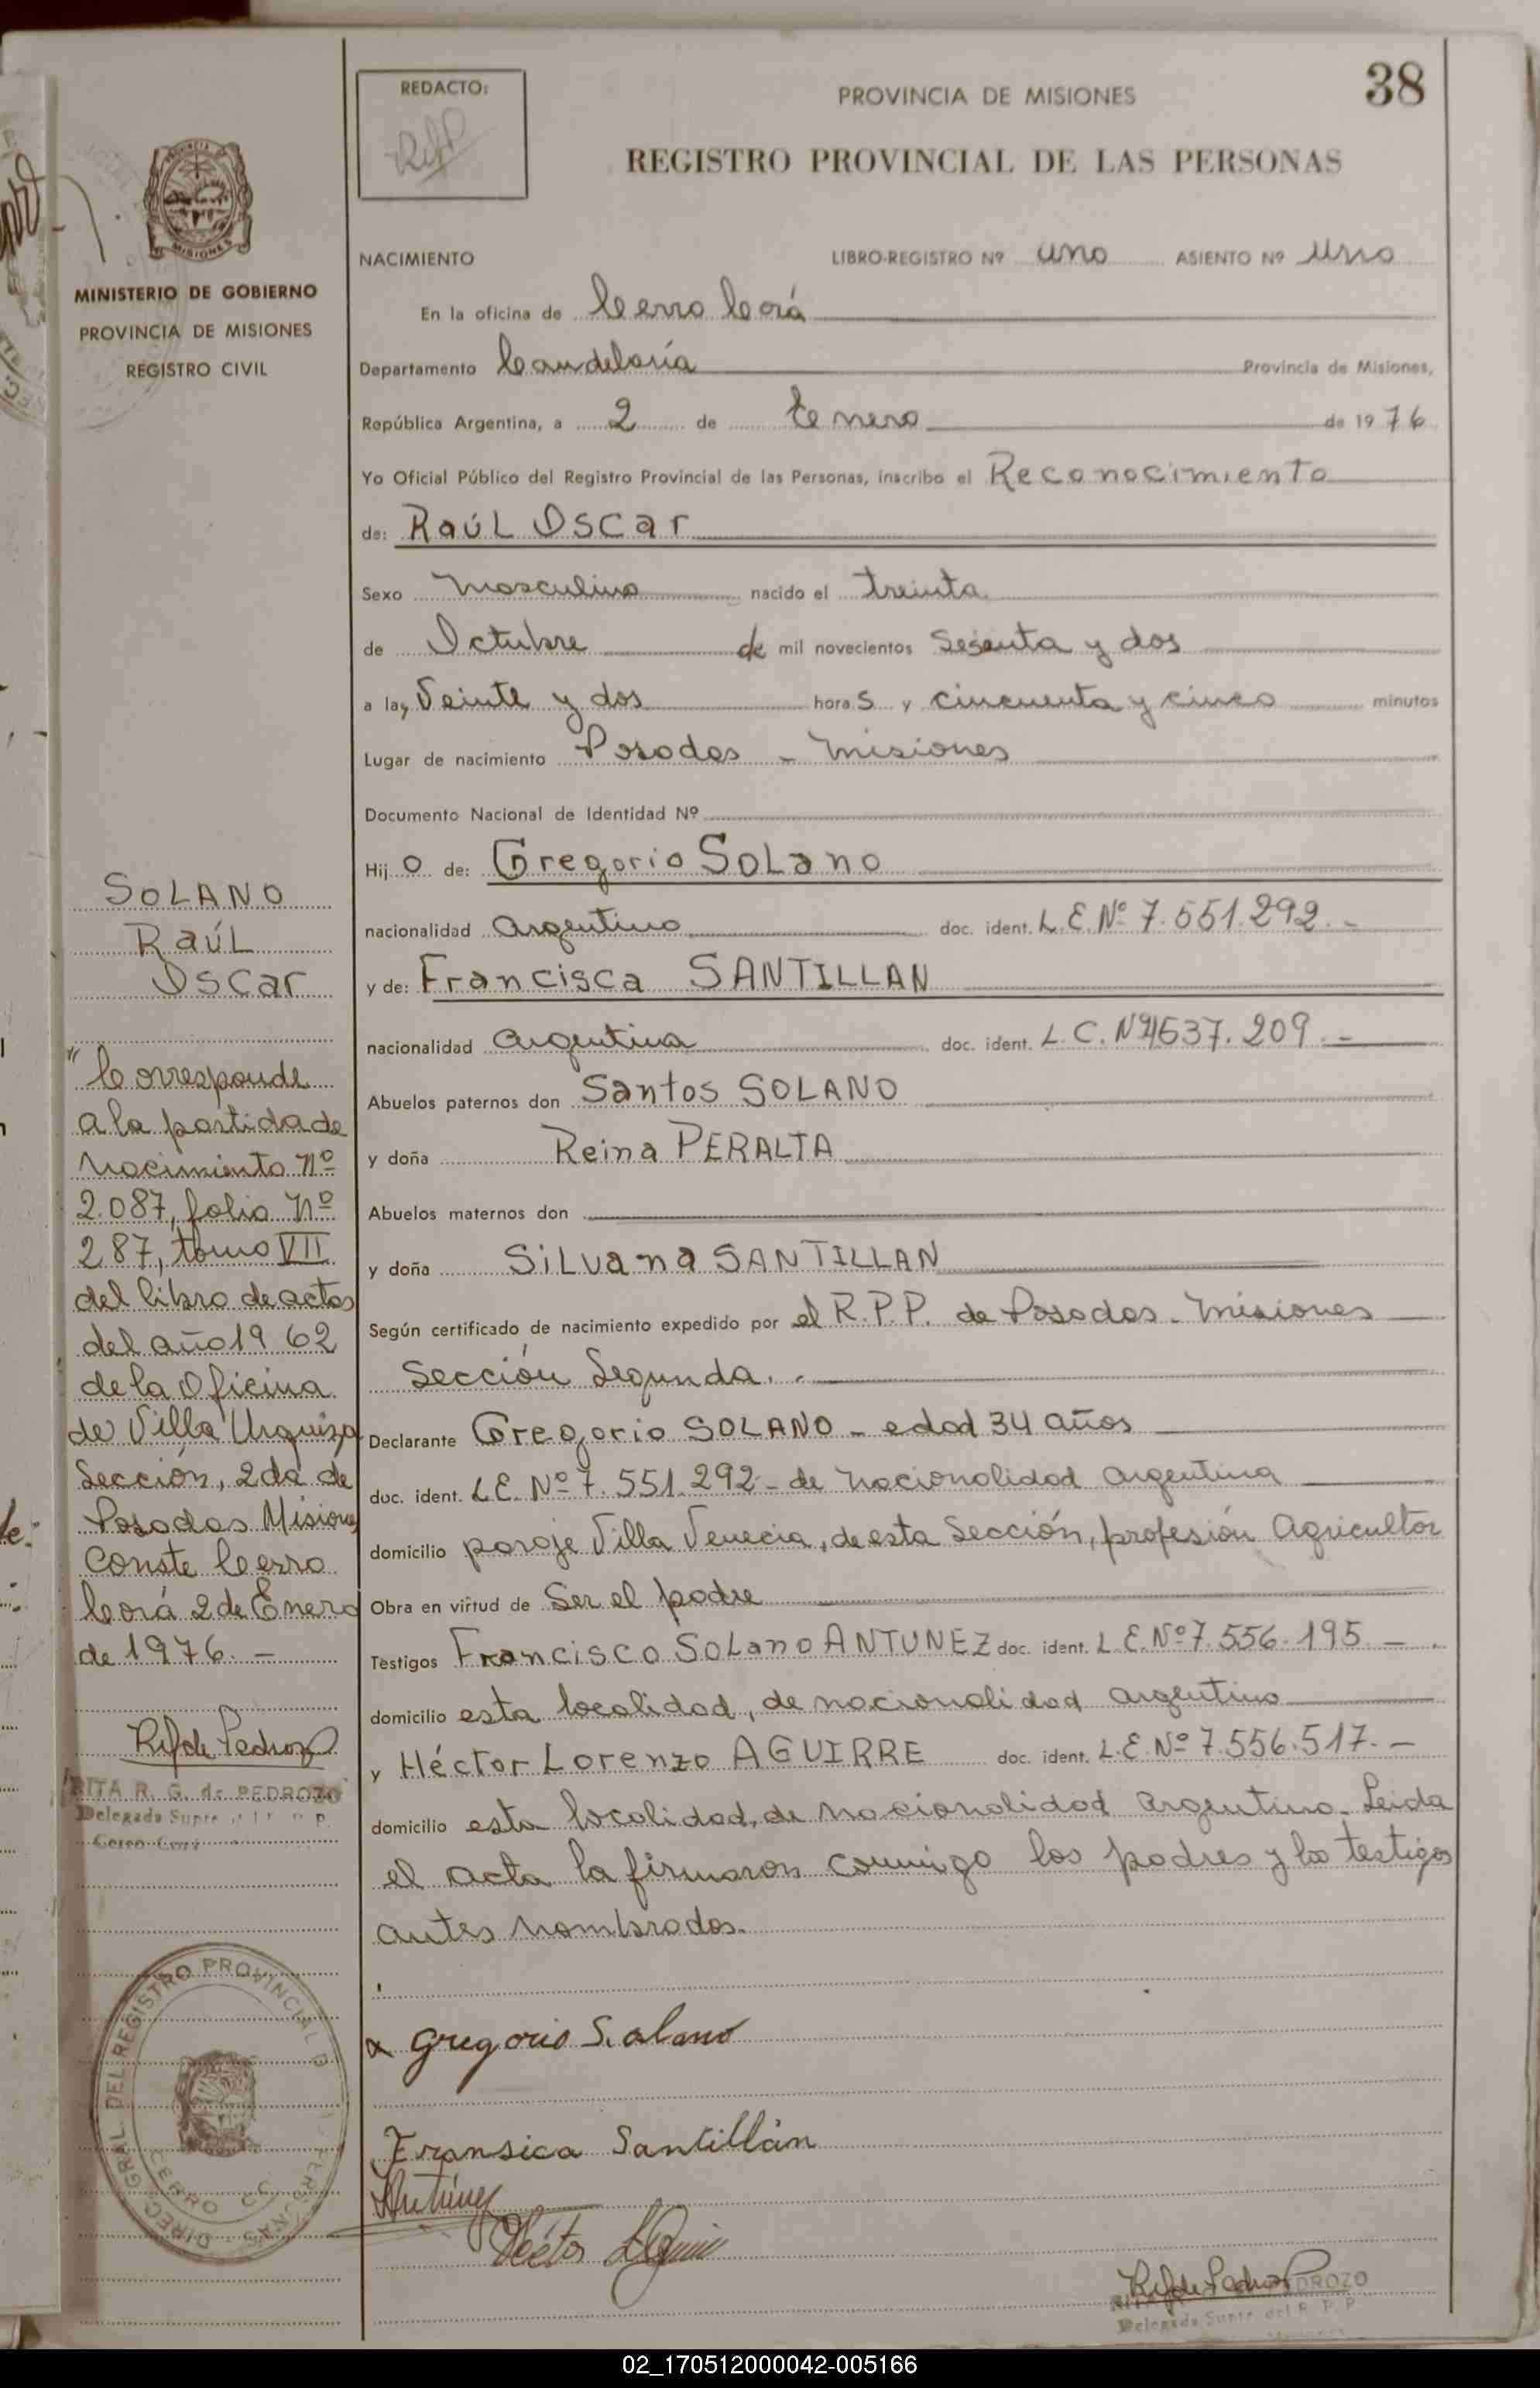 38
REDACTO:
PROVINCIA DE MISIONES
REGISTRO PROVINCIAL DE LAS PERSONAS
MISIONES
MINISTERIO DE GOBIERNO
PROVINCIA DE MISIONES
REGISTRO CIVIL
NACIMIENTO LIBRO-REGISTRO Nº uno ASIENTO Nº Uno
En la oficina de Cerro Corá
Departamento Candelaria Provincia de Misiones,
República Argentina, a 2 de Enero de 1976
Yo Oficial Público del Registro Provincial de las Personas, inscribo el Reconocimiento
de: Raúl Oscar
Sexo Masculino nacido el treinta
de Octubre de mil novecientos Sesenta y dos
a las Veinte y dos horas y cincuenta y cinco minutos
Lugar de nacimiento Posadas - Misiones
Documento Nacional de Identidad Nº
Hijo de: Gregorio Solano
nacionalidad Argentino doc. ident. L.E. Nº 7.551.292.-
y de: Francisca SANTILLAN
nacionalidad Argentina doc. ident. L.C. Nº 4637.209.-
Abuelos paternos don Santos SOLANO
y doña Reina PERALTA
Abuelos maternos don
y doña Silvana SANTILLAN
Según certificado de nacimiento expedido por el R.P.P. de Posadas - Misiones
Sección Segunda.-
Declarante Gregorio SOLANO - edad 34 años
doc. ident. L.E. Nº 7.551.292 - de nacionalidad argentina
domicilio paraje Villa Venecia, de esta Sección, profesión Agricultor
Obra en virtud de Ser el padre
Testigos Francisco Solano ANTUNEZ doc. ident. L.E. Nº 7.556.195.-
domicilio esta localidad, de nacionalidad argentino
y Héctor Lorenzo AGUIRRE doc. ident. L.E. Nº 7.556.517.-
domicilio esta localidad, de nacionalidad argentino. Leida
el acta la firmaron conmigo los padres y los testigos
antes nombrados.-
SOLANO
Raúl
Oscar
"Corresponde
a la partida de
nacimiento nº
2.087, folio nº
287, tomo VII
del libro de actas
del año 1962
de la Oficina
de Villa Urquiza
Sección, 2da de
Posadas Misiones
Conste Cerro
Corá 2 de Enero
de 1976.-
RITA R. G. de PEDROZO
Delegada Supte.
Cerro Corá
DIREC. GRAL. DEL REGISTRO PROVINCIAL D PERSONAS
CERRO CO
Gregorio Solano
Fransica Santillán
Antúnez
Héctor
PEDROZO
Delegada Supte. del R. P. P.
02_170512000042-005166